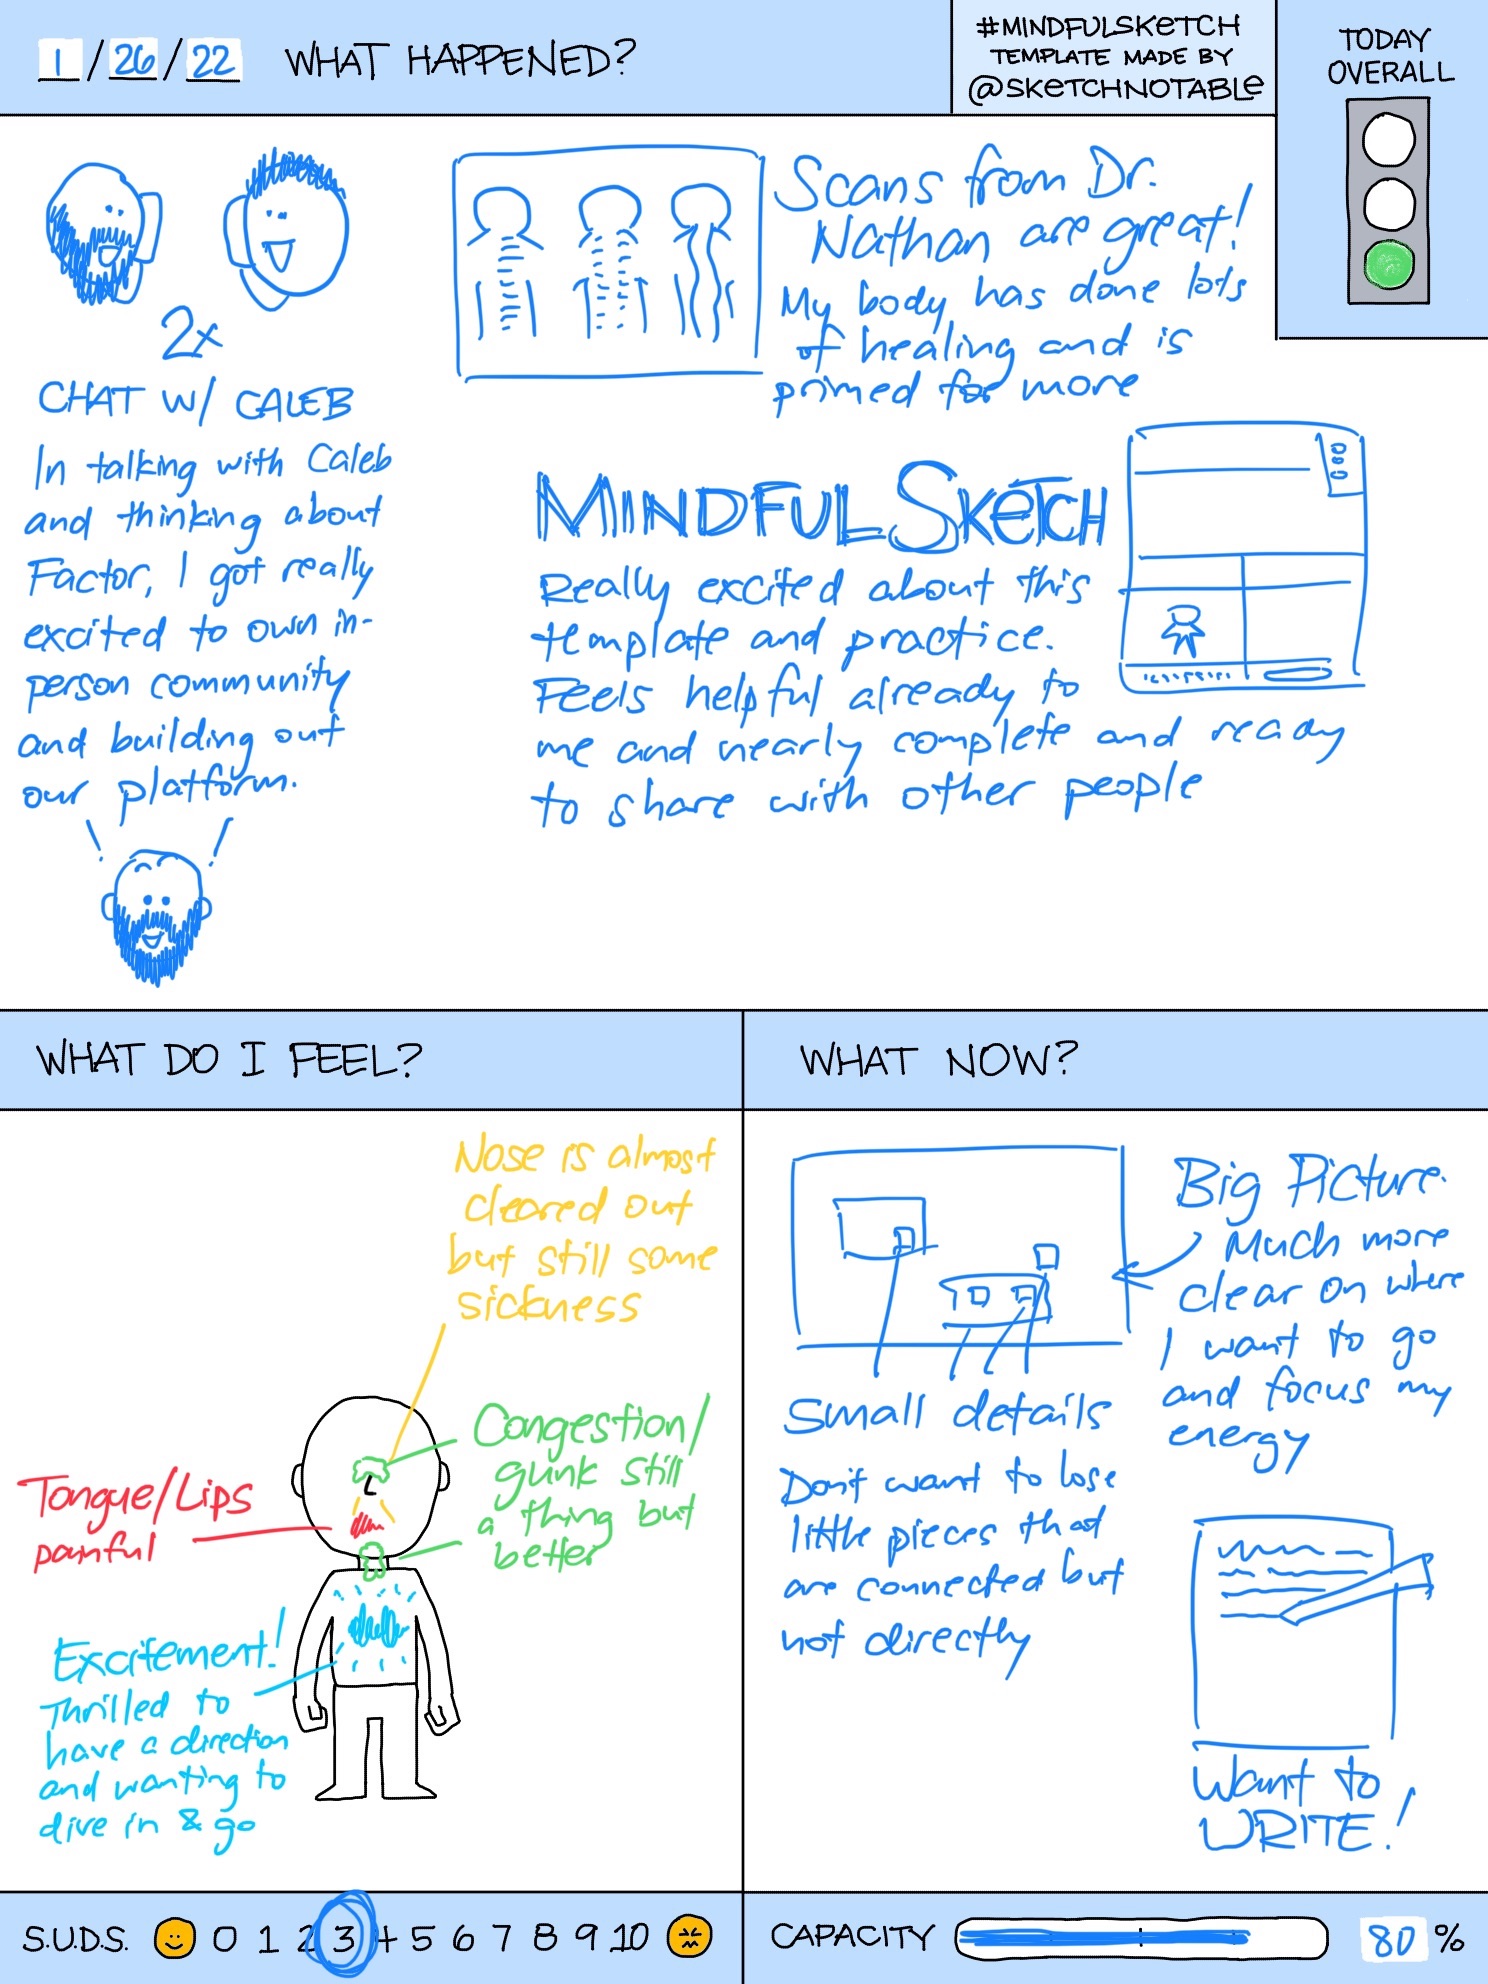 1/26/22 WHAT HAPPENED?
#MINDFULSKETCH
TEMPLATE MADE BY
@SKETCHNOTABLE
TODAY
OVERALL
2x
CHAT W/ CALEB
In talking with Caleb
and thinking about
Factor, I got really
excited to own in-
person community
and building out
our platform.
Scans from Dr.
Nathan are great!
My body has done lots
of healing and is
primed for more
MINDFUL SKETCH
Really excited about this
template and practice.
Feels helpful already to
me and nearly complete and ready
to share with other people
WHAT DO I FEEL?
Nose is almost
cleared out
but still some
sickness
Congestion/
gunk still
a thing but
better
Tongue/Lips
painful
Excitement!
Thrilled to
have a direction
and wanting to
dive in & go
WHAT NOW?
Big Picture.
Much more
clear on where
I want to go
and focus my
energy
Small details
Don't want to lose
little pieces that
are connected but
not directly
Want to
WRITE!
S.U.D.S. 0 1 2 3 4 5 6 7 8 9 10
CAPACITY 80%